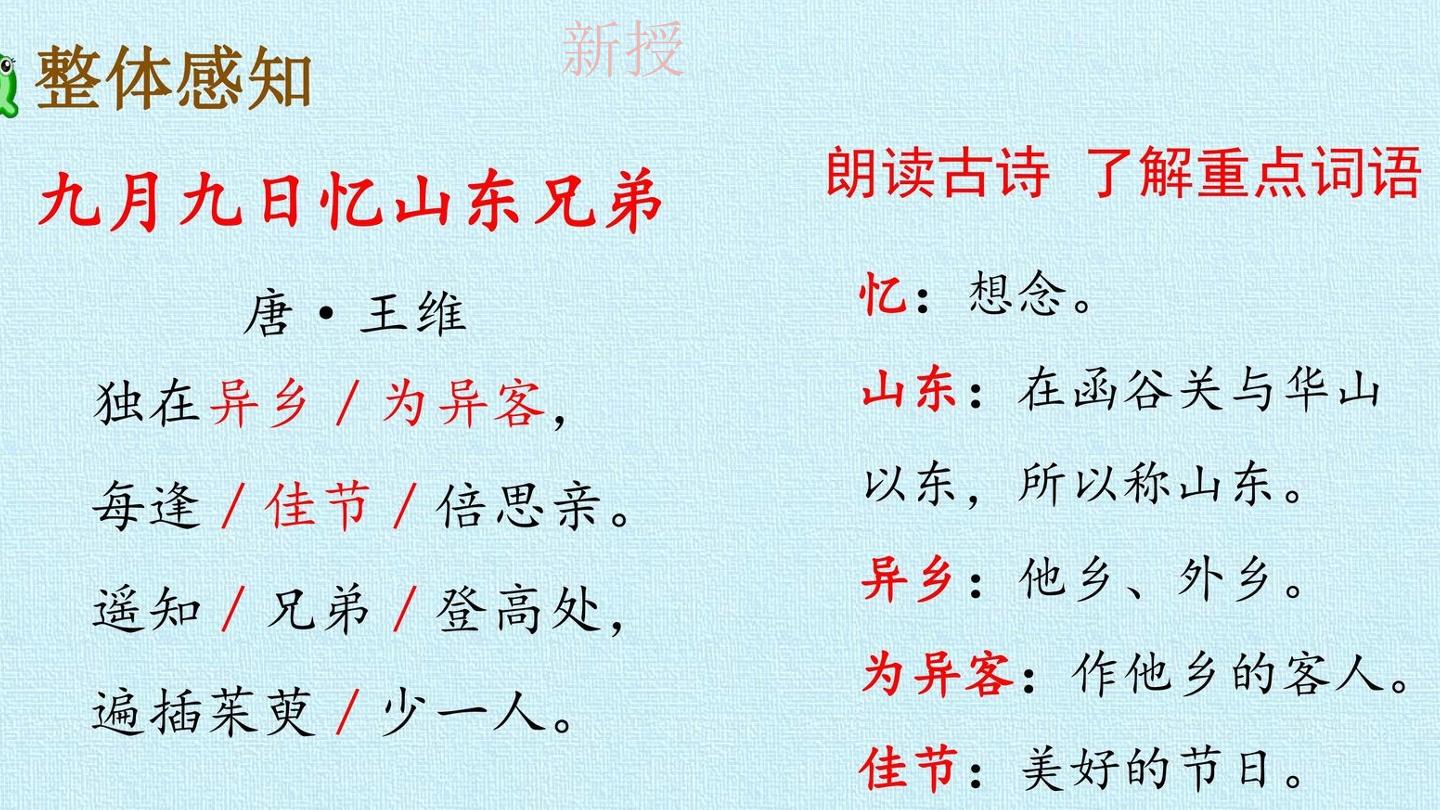 新授
整体感知
九月九日忆山东兄弟
唐·王维
独在异乡/为异客，
每逢/佳节/倍思亲。
遥知/兄弟/登高处，
遍插茱萸/少一人。
朗读古诗 了解重点词语
忆：想念。
山东：在函谷关与华山
以东，所以称山东。
异乡：他乡、外乡。
为异客：作他乡的客人。
佳节：美好的节日。